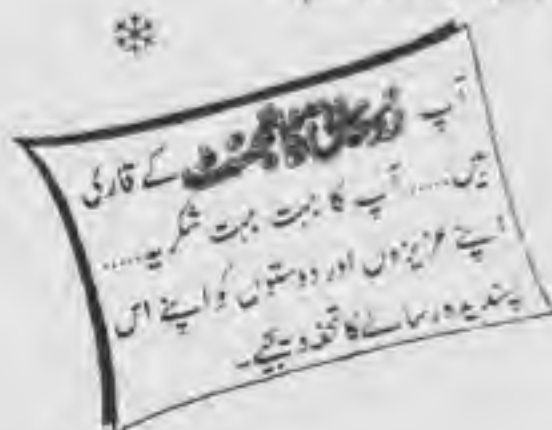 آپ روحانی ڈائجسٹ کے قاری
ہیں..... آپ کا بہت بہت شکریہ.....
اپنے عزیزوں اور دوستوں کو اپنے اس
پسندیدہ رسالے کا تحفہ دیجیے۔